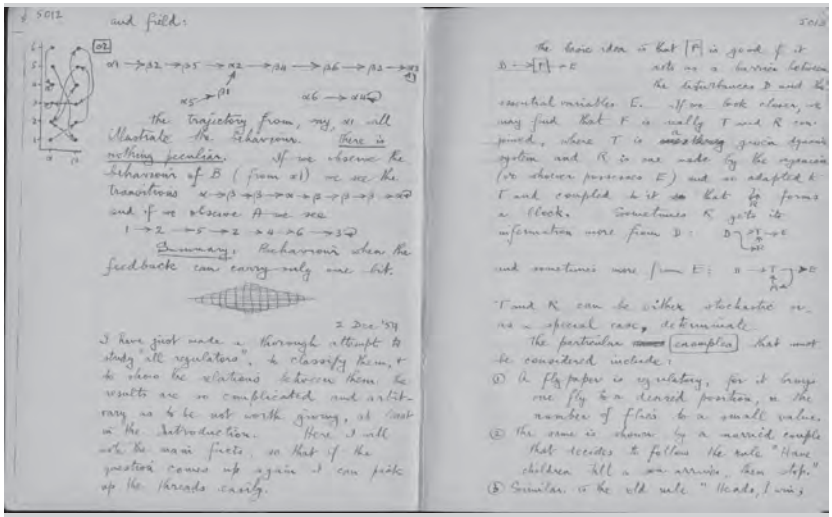 5012
and field:
α2
6
5
4
3
2
1
α1 → β2 → β5 → α2 → β4 → β6 → β3 → α3
α5 → β1
α6 → α4
the trajectory from, say, α1 will
illustrate the behaviour. there is
nothing peculiar. If we observe the
behaviour of B (from α1) we see the
transitions α → β → β → α → β → β → β → α
and if we observe A we see
1 → 2 → 5 → 2 → 4 → 6 → 3
Summary: Behaviour when the
feedback can carry only one bit.
2 Dec '54
I have just made a thorough attempt to
study "all regulators", to classify them, &
to show the relations between them. the
results are so complicated and arbit-
rary as to be not worth giving, at least
in the Introduction. Here I will
note the main facts, so that if the
question comes up again I can pick
up the threads easily.
5013
the basic idea is that F is good if it
D → F → E acts as a barrier between
the disturbances D and the
essential variables E. If we look closer, we
may find that F is really T and R com-
pound, where T is a given dynamic
system and R is one made by the organism
(or whoever possesses E) and so adapted to
T and coupled to it that forms
a block. Sometimes R gets its
information more from D: D T → E
R
and sometimes more from E: D → T → E
R
T and R can be either stochastic or,
as a special case, determinate.
The particular examples that must
be considered include:
① A fly paper is regulatory, for it brings
one fly to a desired position, or the
number of flies to a small value.
② the same is shown by a married couple
that decides to follow the rule "Have
children till a son arrives, then stop."
③ Similar is the old rule "Heads, I win;